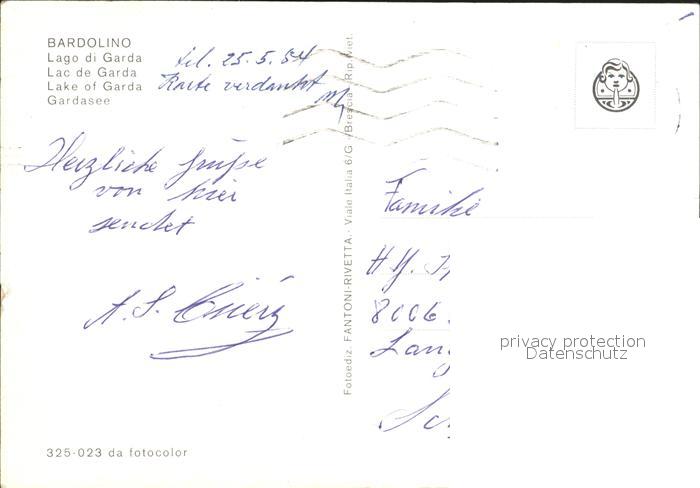 BARDOLINO
Lago di Garda
Lac de Garda
Lake of Garda
Gardasee
tel. 25.5.84
Karte verdankt
Herzliche Grüsse
von hier
sendet
A. S.
325-023 da fotocolor
Fotoediz. FANTONI-RIVETTA - Viale Italia 6/G - Brescia - Rip. Viet.
Familie
8006
privacy protection
Datenschutz